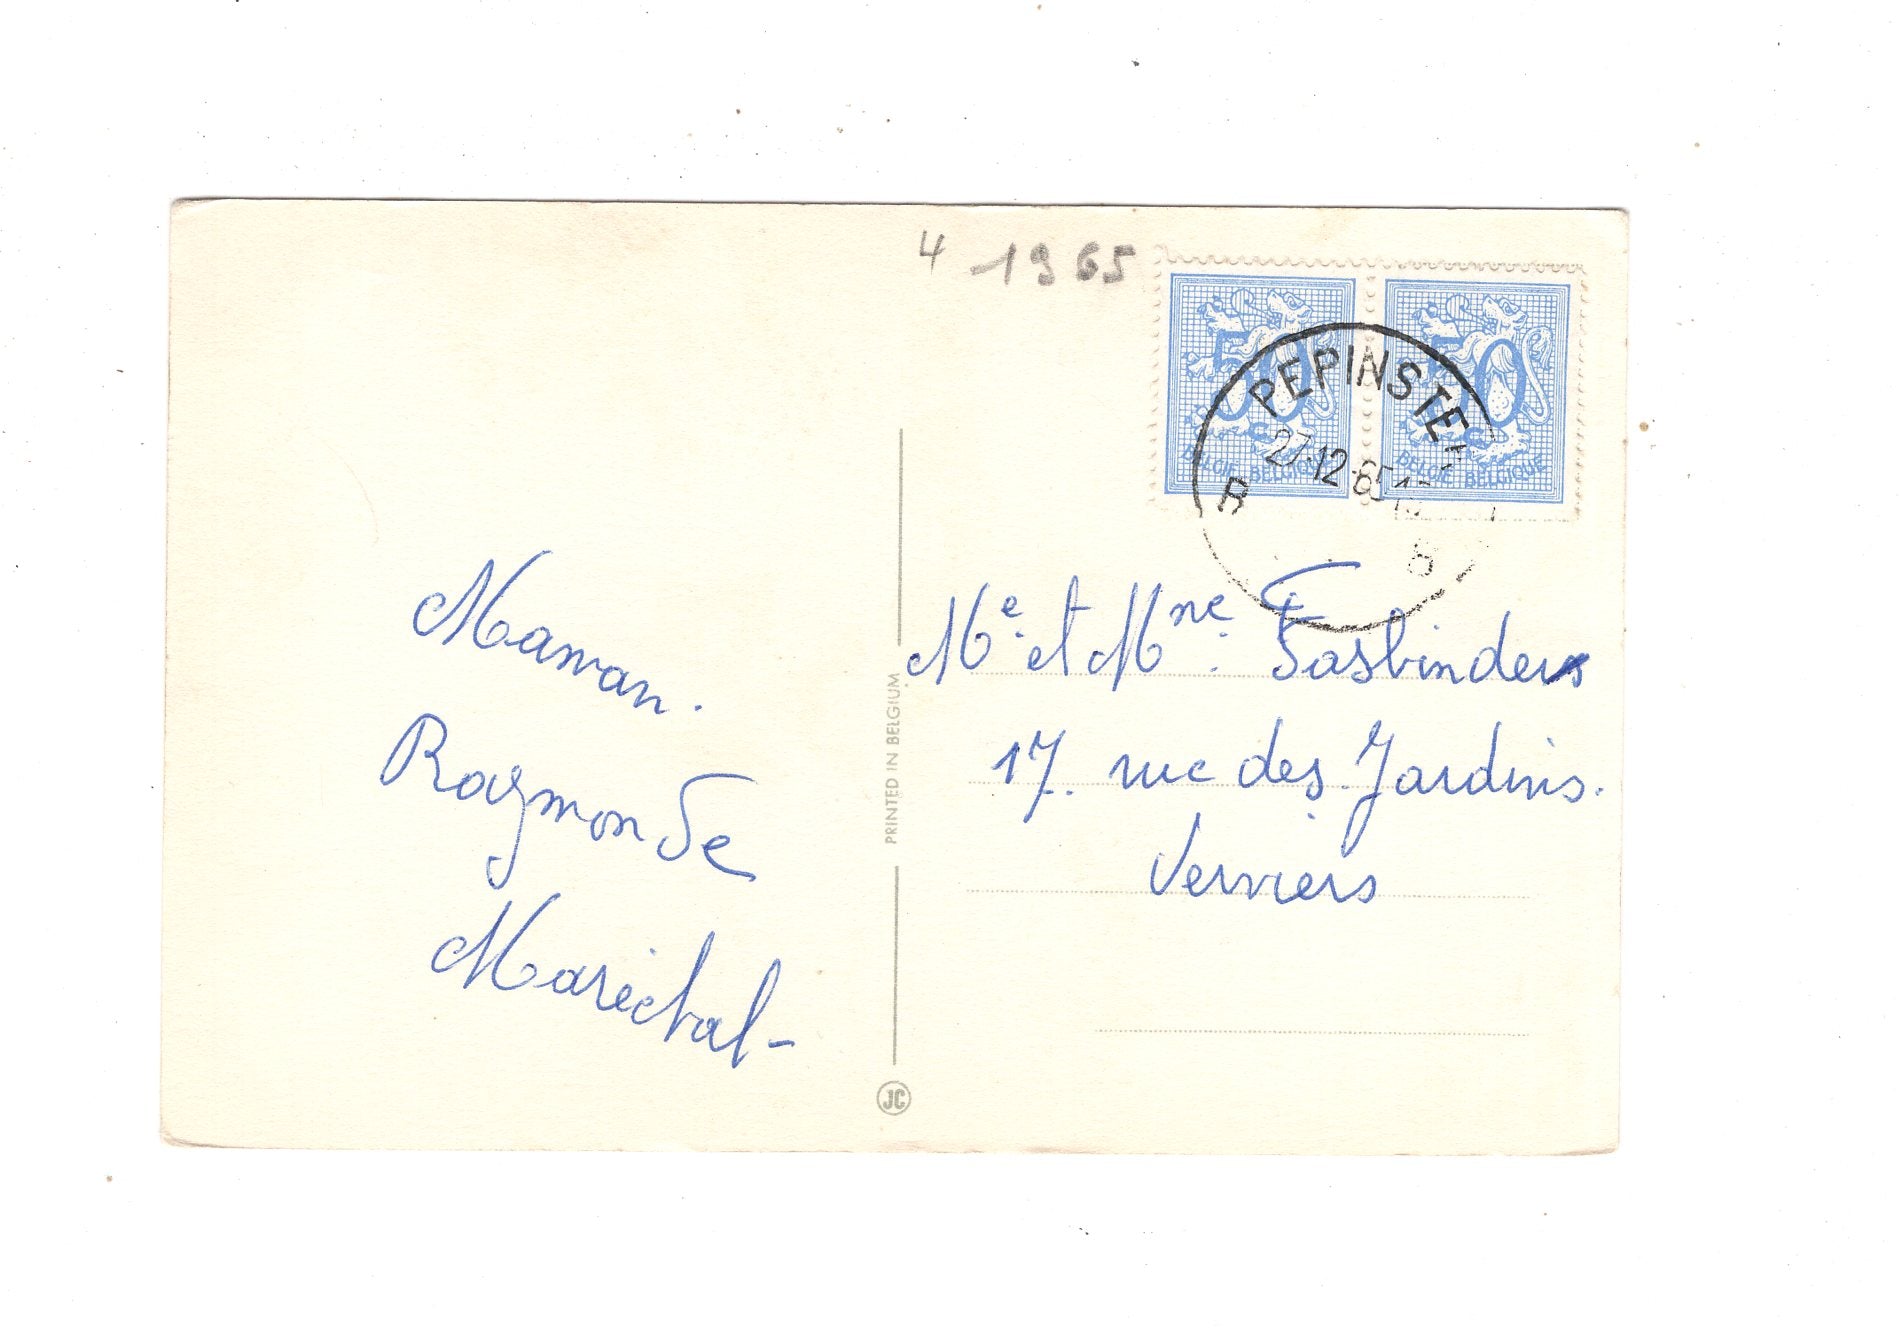 4 1965
50
BELGIË-BELGIQUE
50
BELGIË BELGIQUE
PEPINSTE
27-12-65
B
B
Maman.
Raymonde
Maréchal-
PRINTED IN BELGIUM
JC
Mr. et Mme. Fasbinder
17. rue des Jardins.
Verviers